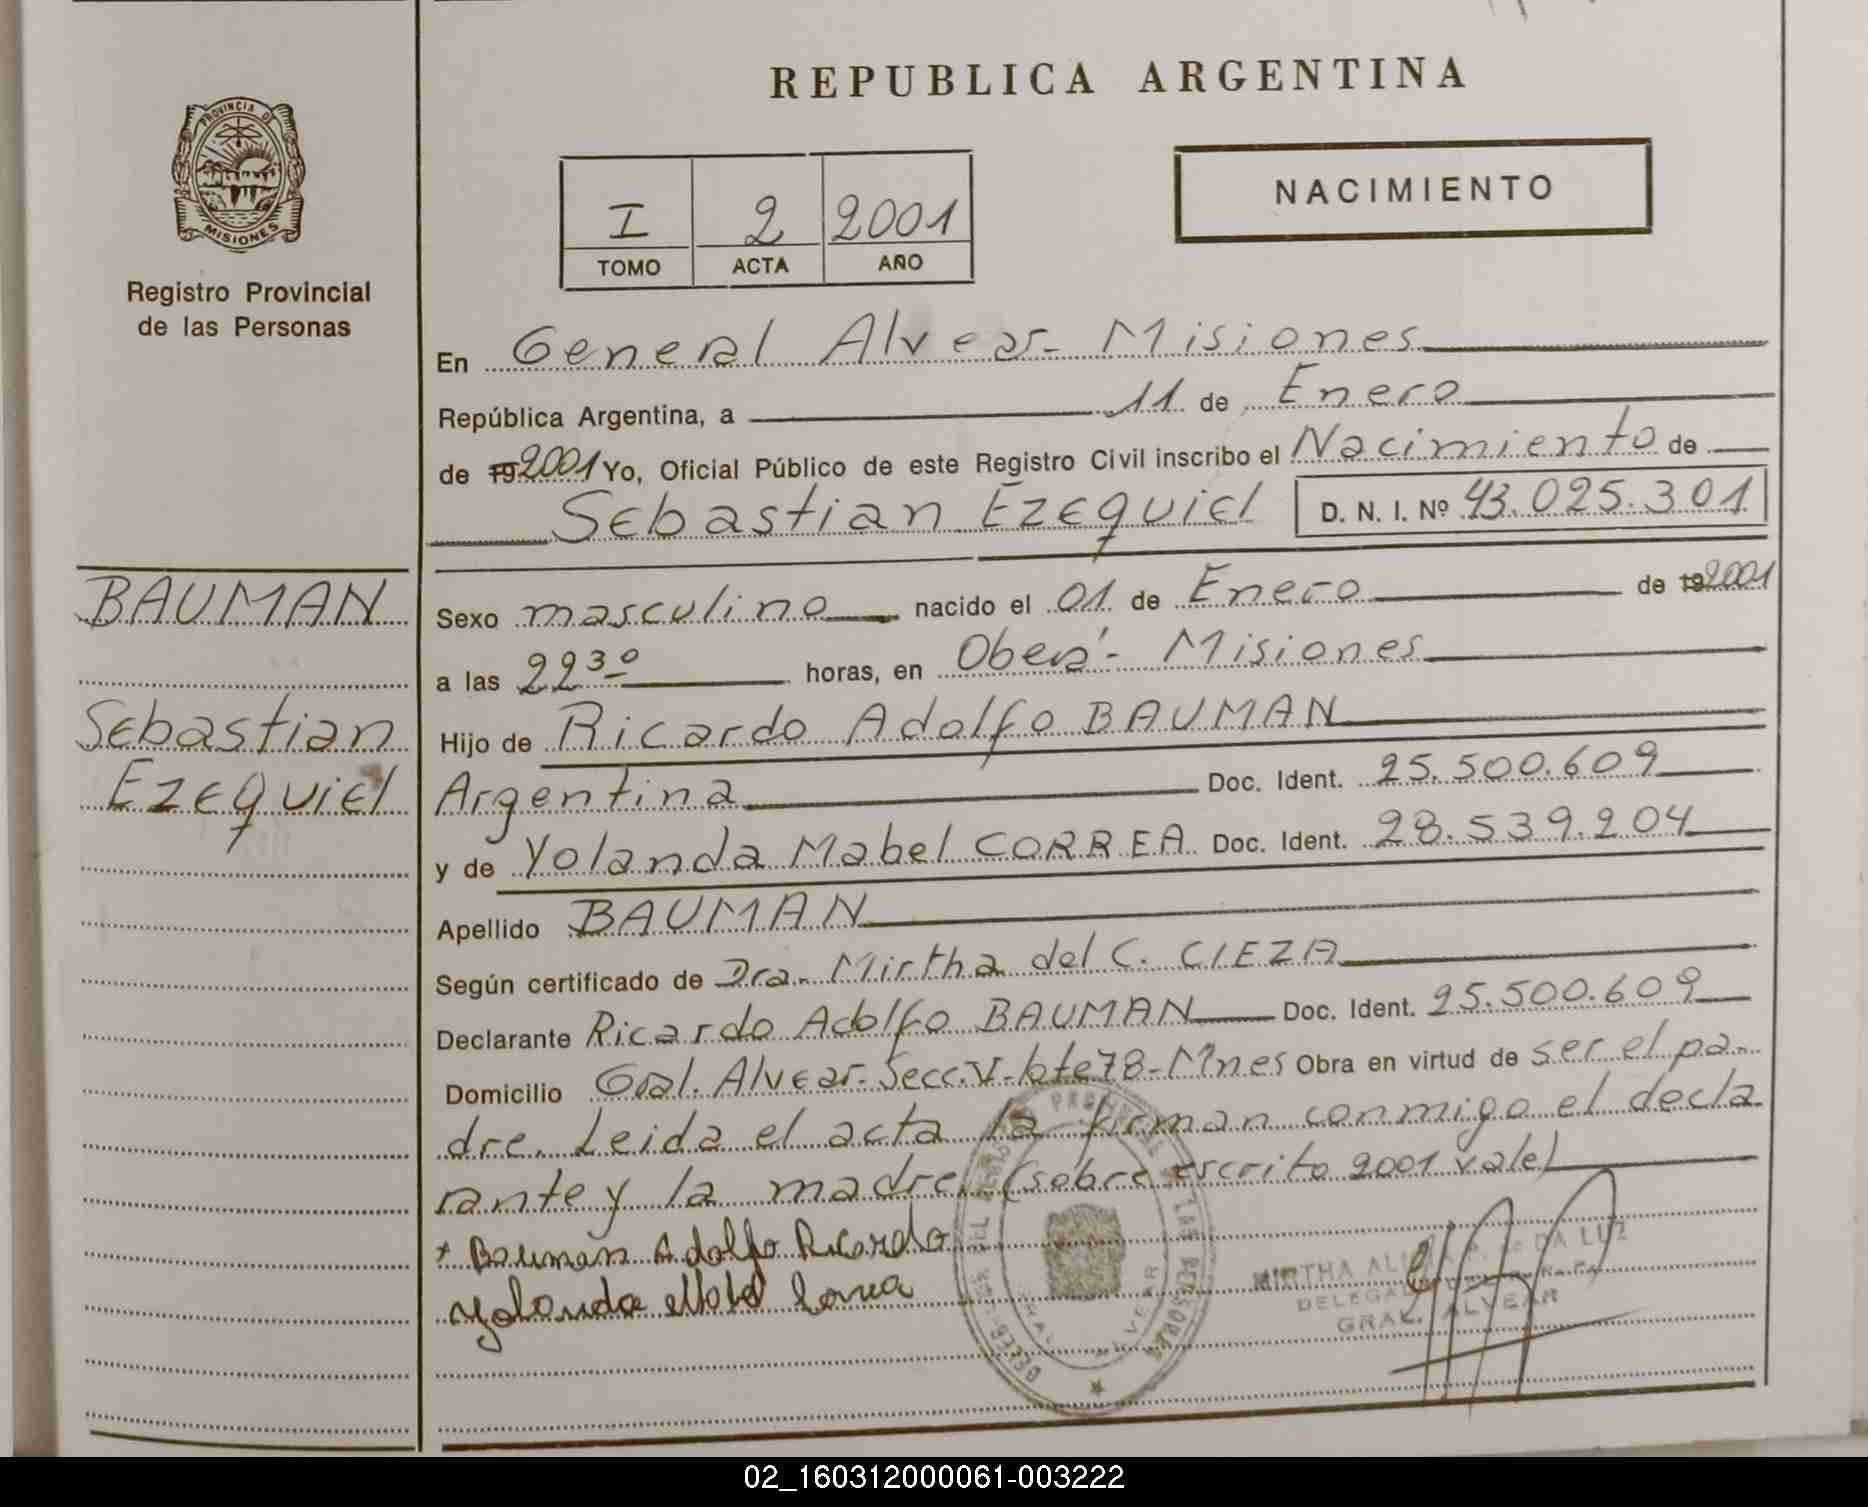 REPUBLICA ARGENTINA
PROVINCIA DE
MISIONES
Registro Provincial
de las Personas
NACIMIENTO
I 2 2001
TOMO ACTA AÑO
En General Alvear- Misiones
República Argentina, a 11 de Enero
de 19 2001 Yo, Oficial Público de este Registro Civil inscribo el Nacimiento de
Sebastian Ezequiel D. N. I. Nº 43.025.301
BAUMAN
Sebastian
Ezequiel
Sexo masculino nacido el 01 de Enero de 19 2001
a las 22 30 horas, en Oberá- Misiones
Hijo de Ricardo Adolfo BAUMAN
Argentina Doc. Ident. 25.500.609
y de Yolanda Mabel CORREA Doc. Ident. 28.539.204
Apellido BAUMAN
Según certificado de Dra. Mirtha del C. CIEZA
Declarante Ricardo Adolfo BAUMAN Doc. Ident. 25.500.609
Domicilio Gral. Alvear-Secc.V-lote78-Mnes Obra en virtud de ser el pa-
dre. Leida el acta la firman conmigo el decla
rante y la madre. (sobre escrito 2001 vale)
+ Bauman Adolfo Ricardo
Yolanda Mabel Correa
MIRTHA DA LUZ
GRAL. ALVEAR
DE LAS PERSONAS
GRAL. ALVEAR
02_160312000061-003222